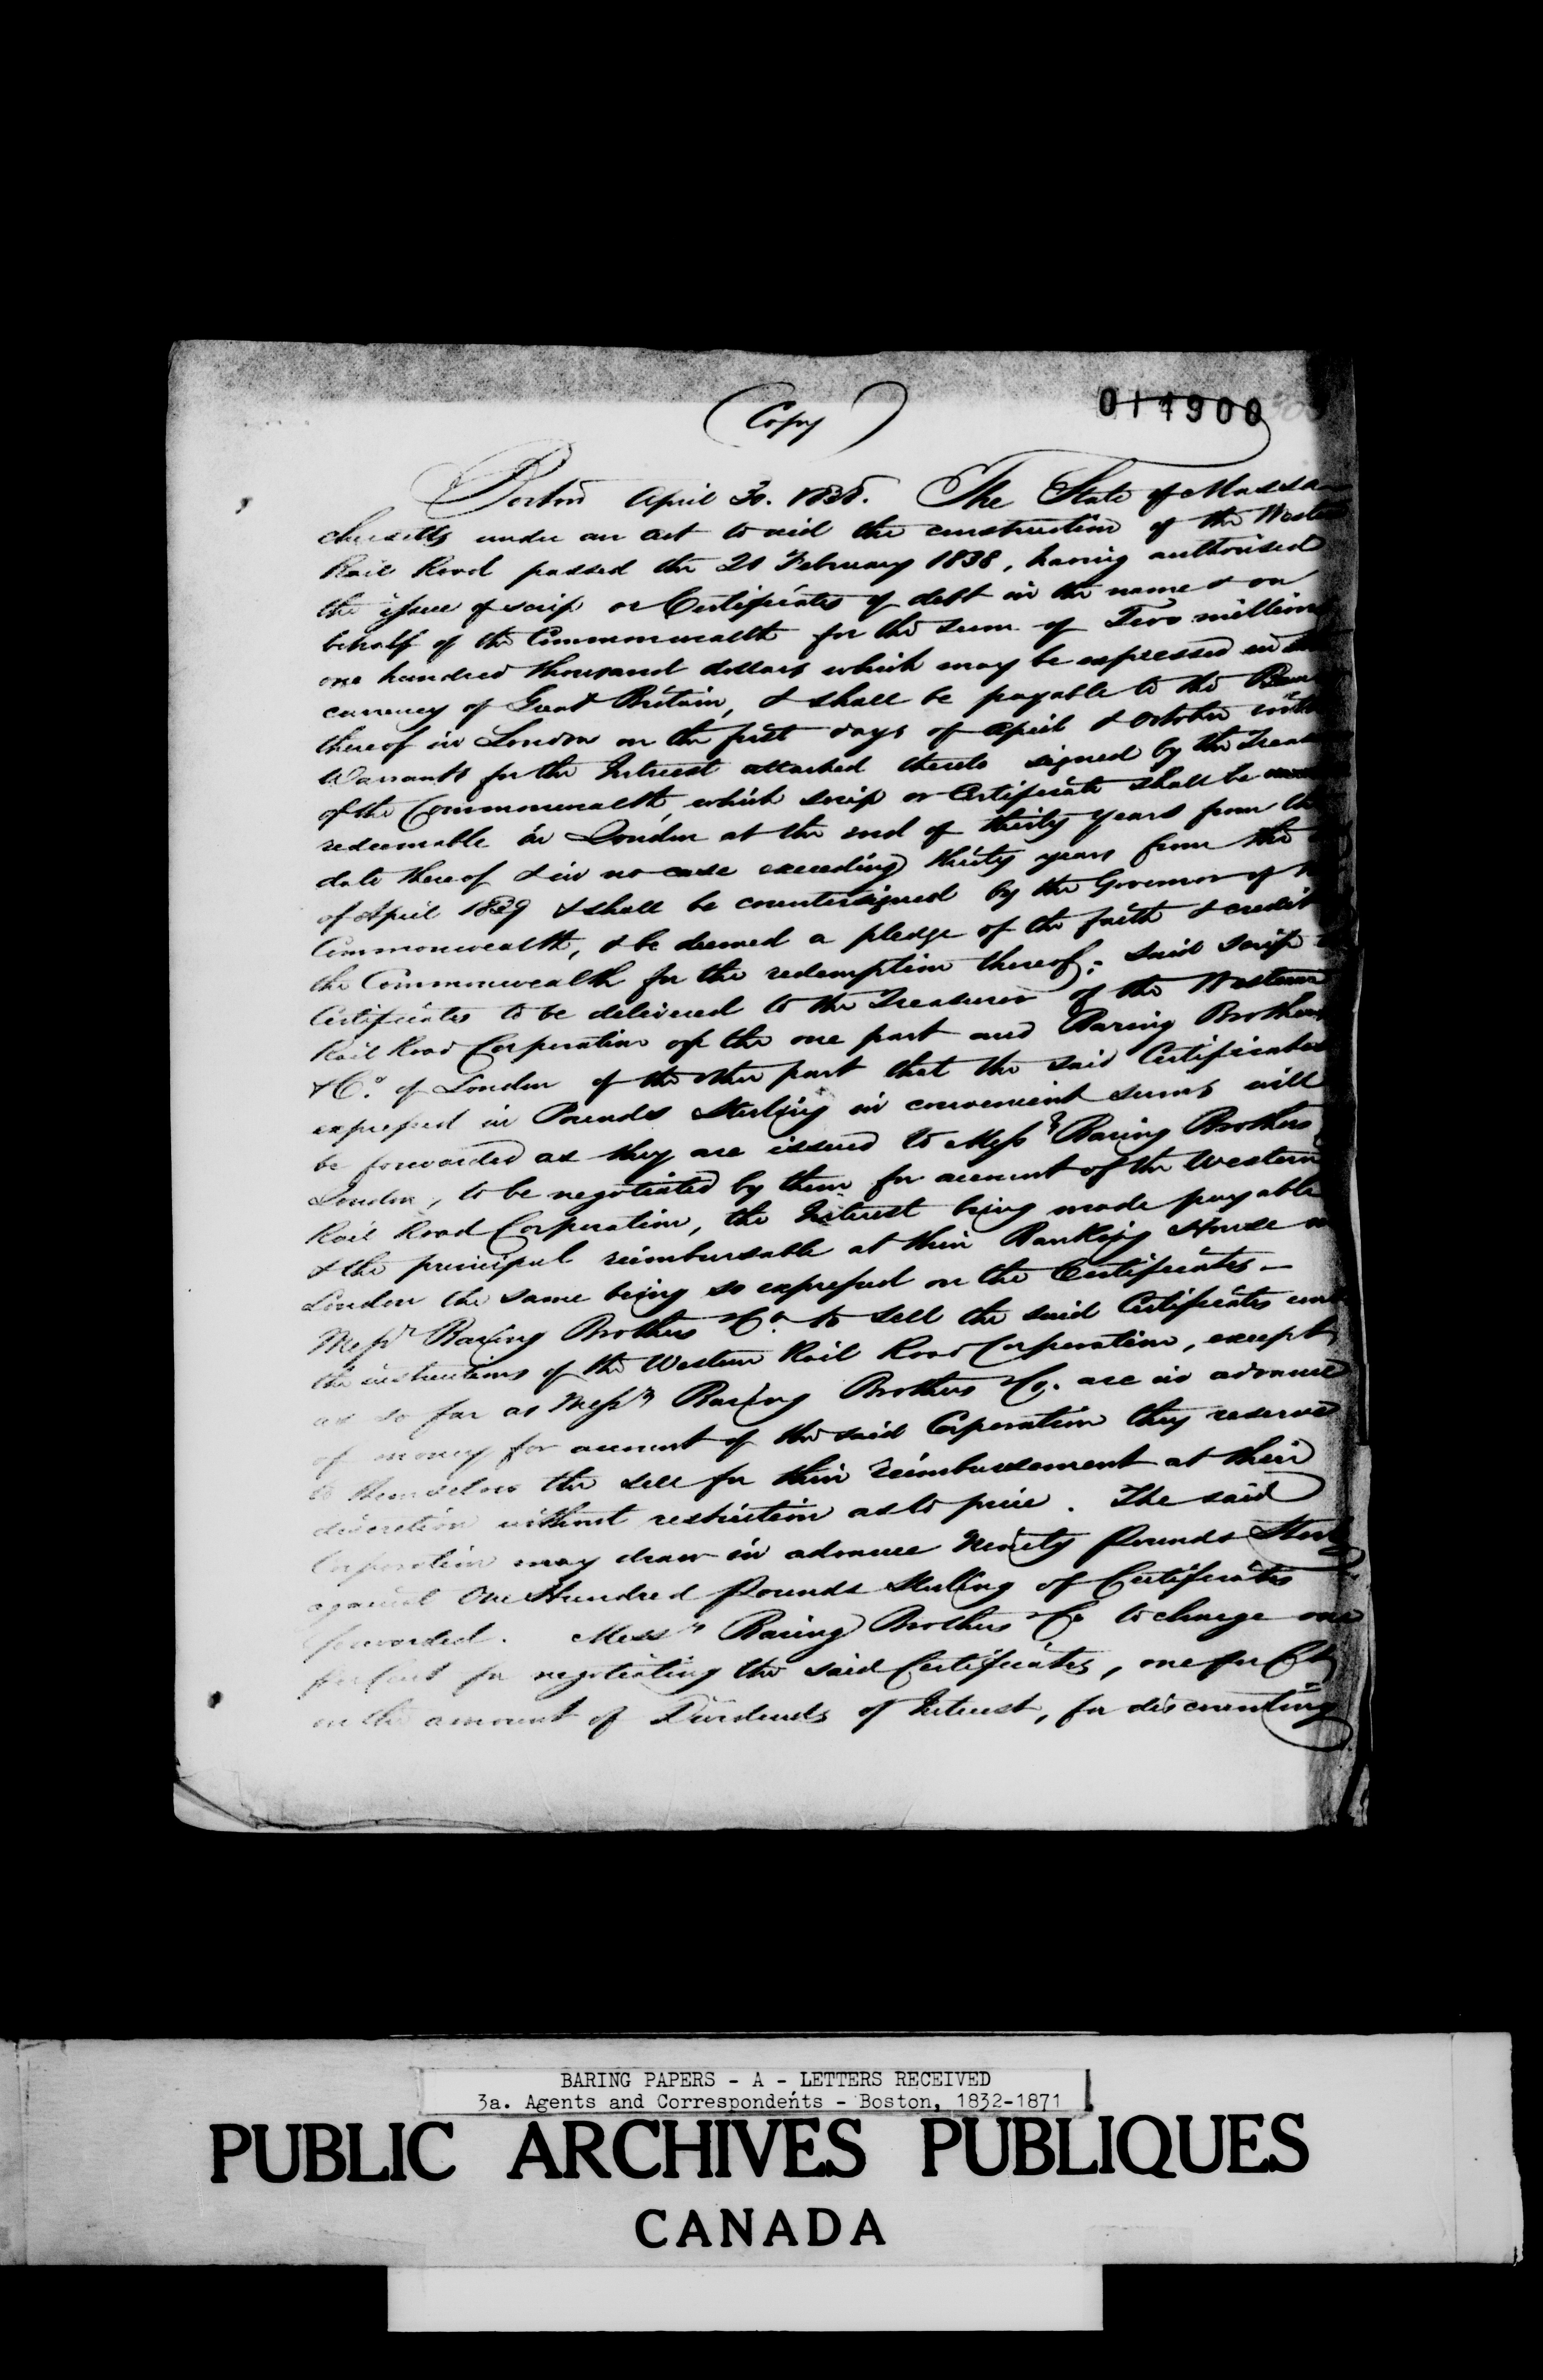 (Copy)
011900
Boston April 30. 1838. The State of Massa
chusetts under an act to aid the construction of the Western
Rail Road passed the 21 February 1838, having authorised
the issue of scrip or Certificates of debt in the name & on
behalf of the Commonwealth for the sum of Two millions
one hundred thousand dollars which may be expressed in the
currency of Great Britain, & shall be payable to the
thereof in London on the first days of April & October with
Warrants for the Interest attached thereto signed by the Treasurer
of the Commonwealth, which scrip or Certificate shall be
redeemable in London at the end of thirty years from the
date thereof & in no case exceeding thirty years from the
of April 1839 & shall be countersigned by the Governor of
Commonwealth, & be deemed a pledge of the faith & credit
the Commonwealth for the redemption thereof; said scrip
Certificates to be delivered to the Treasurer of the Western
Rail Road Corporation of the one part and Baring Brothers
& Co. of London of the other part that the said Certificates
expressed in Pounds Sterling in convenient sums will
be forwarded as they are issued to Messrs Baring Brothers
London, to be negotiated by them for account of the Western
Rail Road Corporation, the Interest being made payable
& the principal reimbursable at their Banking House in
London the same being so expressed on the Certificates—
Messrs Baring Brothers & Co. to sell the said Certificates
the instructions of the Western Rail Road Corporation, except
as so far as Messrs Baring Brothers & Co. are in advance
of money for account of the said Corporation they reserve
to themselves the sell for their reimbursement at their
discretion without restriction as to price. The said
Corporation may draw in advance Ninety Pounds Sterlg
against One Hundred Pounds Sterling of Certificates
forwarded. Messrs Baring Brothers & Co to charge one
per Cent for negotiating the said Certificates, one per Ct
on the amount of Dividends of Interest, for discounting
BARING PAPERS - A - LETTERS RECEIVED
3a. Agents and Correspondents - Boston, 1832-1871
PUBLIC ARCHIVES PUBLIQUES
CANADA